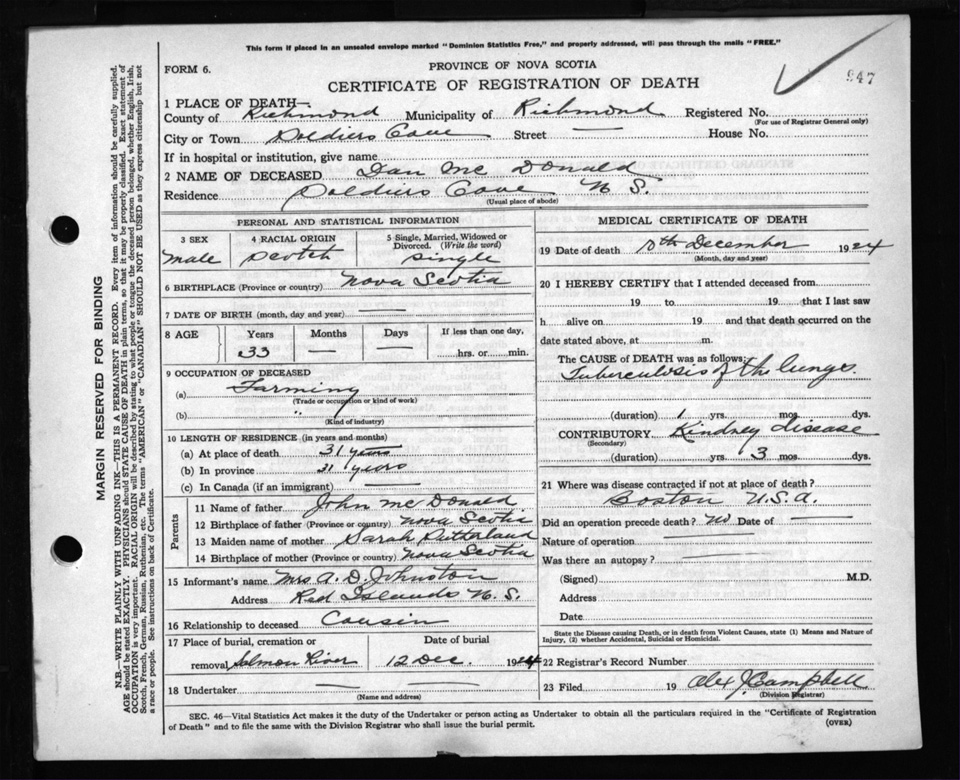 This form if placed in an unsealed envelope marked "Dominion Statistics Free," and properly addressed, will pass through the mails "FREE."
FORM 6.
PROVINCE OF NOVA SCOTIA
947
CERTIFICATE OF REGISTRATION OF DEATH
1 PLACE OF DEATH—
County of Richmond Municipality of Richmond Registered No.
(For use of Registrar General only)
City or Town Soldiers Cove Street — House No.
If in hospital or institution, give name
2 NAME OF DECEASED Dan Mc Donald
Residence Soldiers Cove N S.
(Usual place of abode)
PERSONAL AND STATISTICAL INFORMATION
3 SEX 4 RACIAL ORIGIN 5 Single, Married, Widowed or Divorced. (Write the word)
Male Scotch Single
6 BIRTHPLACE (Province or country) Nova Scotia
7 DATE OF BIRTH (month, day and year) —
8 AGE Years Months Days If less than one day,
33 — — hrs. or min.
9 OCCUPATION OF DECEASED
(a) Farming
(Trade or occupation or kind of work)
(b) "
(Kind of industry)
10 LENGTH OF RESIDENCE (in years and months)
(a) At place of death 31 years
(b) In province 31 years
(c) In Canada (if an immigrant) —
Parents
11 Name of father John Mc Donald
12 Birthplace of father (Province or country) Nova Scotia
13 Maiden name of mother Sarah Sutterland
14 Birthplace of mother (Province or country) Nova Scotia
15 Informant's name Mrs A. D. Johnston
Address Red Islands N. S.
16 Relationship to deceased Cousin
17 Place of burial, cremation or Date of burial
removal Salmon River 12 Dec. 1924
18 Undertaker — —
(Name and address)
MEDICAL CERTIFICATE OF DEATH
19 Date of death 10th December 1924
(Month, day and year)
20 I HEREBY CERTIFY that I attended deceased from
19 to 19 that I last saw
h alive on 19 and that death occurred on the
date stated above, at m.
The CAUSE of DEATH was as follows:
Tuberculosis of the lungs.
(duration) 1 yrs. mos. dys.
CONTRIBUTORY Kindney disease
(Secondary)
(duration) yrs. 3 mos. dys.
21 Where was disease contracted if not at place of death?
Boston U.S.A.
Did an operation precede death? No Date of —
Nature of operation —
Was there an autopsy? —
(Signed) M.D.
Address
Date
State the Disease causing Death, or in death from Violent Causes, state (1) Means and Nature of
Injury, (2) whether Accidental, Suicidal or Homicidal.
22 Registrar's Record Number
23 Filed 19 Alex J Campbell
(Division Registrar)
SEC. 46—Vital Statistics Act makes it the duty of the Undertaker or person acting as Undertaker to obtain all the particulars required in the "Certificate of Registration
of Death" and to file the same with the Division Registrar who shall issue the burial permit. (OVER)
MARGIN RESERVED FOR BINDING
N.B.—WRITE PLAINLY WITH UNFADING INK—THIS IS A PERMANENT RECORD. Every item of information should be carefully supplied.
AGE should be stated EXACTLY. PHYSICIANS should STATE CAUSE OF DEATH in plain terms, so that it may be properly classified. Exact statement of
OCCUPATION is very important. RACIAL ORIGIN will be described by stating to what people or tongue the deceased person belonged, whether English, Irish,
Scotch, French, German, Russian, Ruthenian, etc. The terms "AMERICAN" or "CANADIAN" SHOULD NOT BE USED as they express citizenship but not
a race or people. See instructions on back of Certificate.